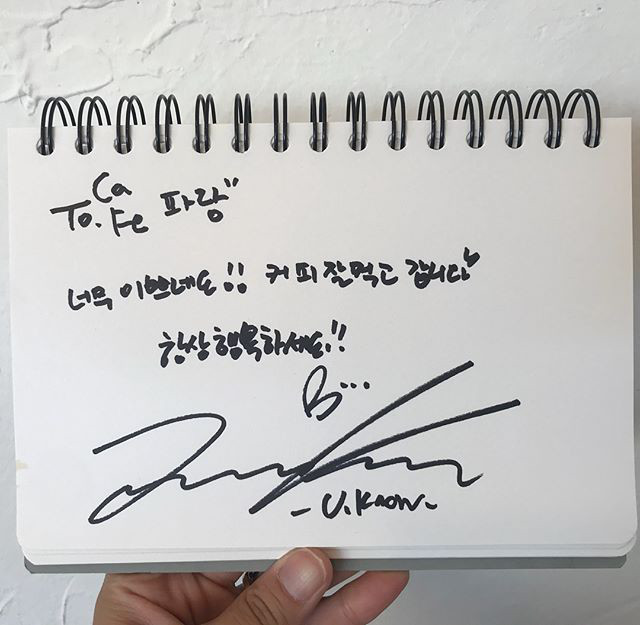 To. CaFe 파랑"
너무 이쁘네요!! 커피 잘 먹고 갑니다♡
항상 행복하세요!!
B...
-U.Know-